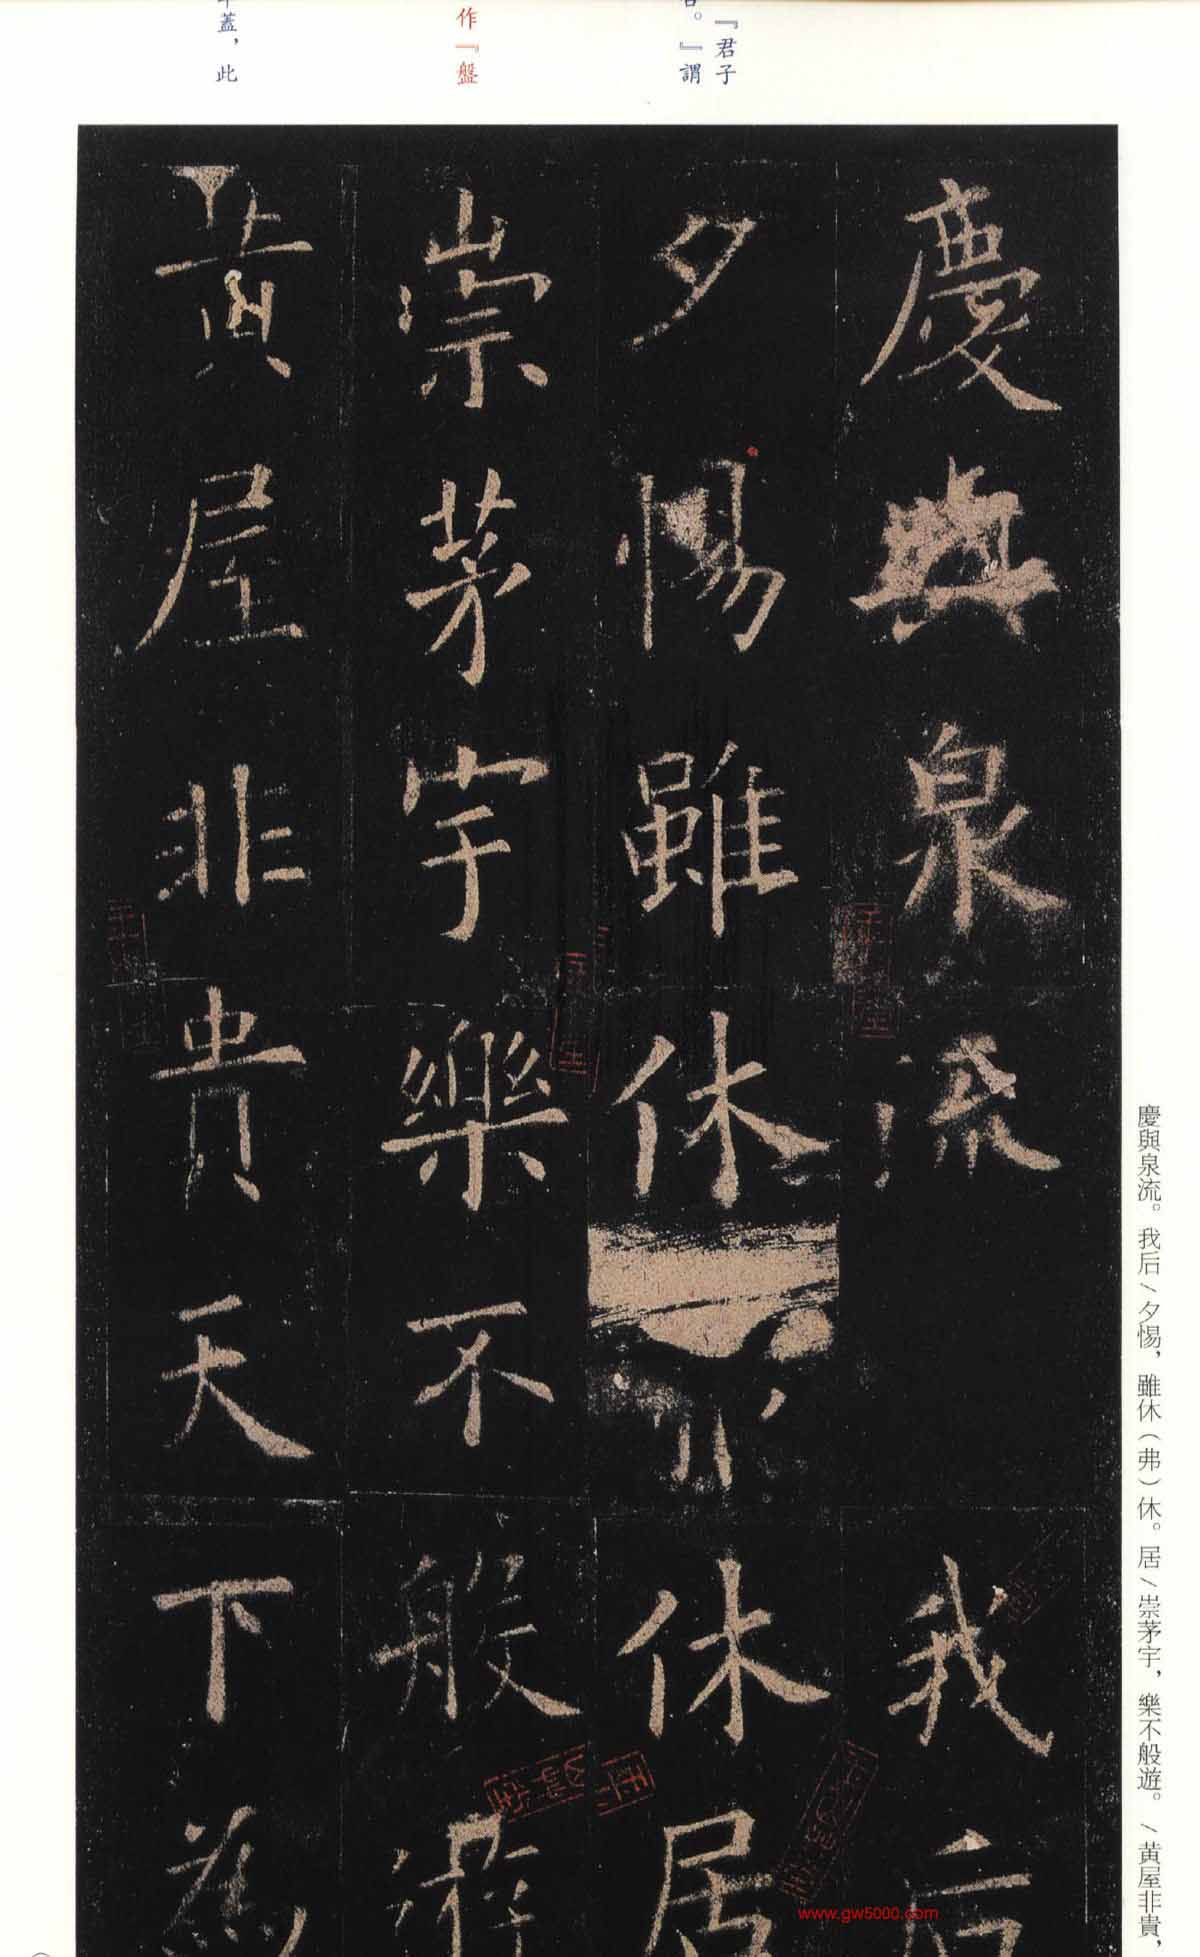 『君子
。』謂
作『盤
蓋，此
慶與泉流。我后／夕惕，雖休（弗）休。居／崇茅宇，樂不般遊。／黄屋非貴，
慶與泉流我后
夕惕雖休休居
崇茅宇樂不般遊
黃屋非貴天下為
www.gw5000.com